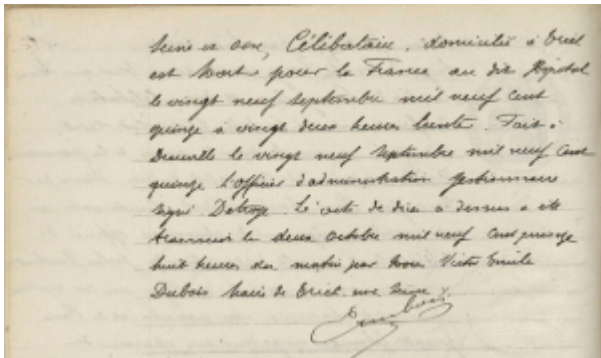 Seine et Oise, Célibataire, domicilié à Triel
est Mort pour la France au dit Hôpital
le vingt neuf Septembre mil neuf cent
quinze à vingt deux heures trente. Fait à
le vingt neuf Septembre mil neuf cent
quinze L'officier d'administration gestionnaire
signé L'acte de décès ci dessus a été
transcrit le deux Octobre mil neuf cent quinze
huit heures du matin par Nous Victor Emile
Dubois Maire de Triel sur Seine